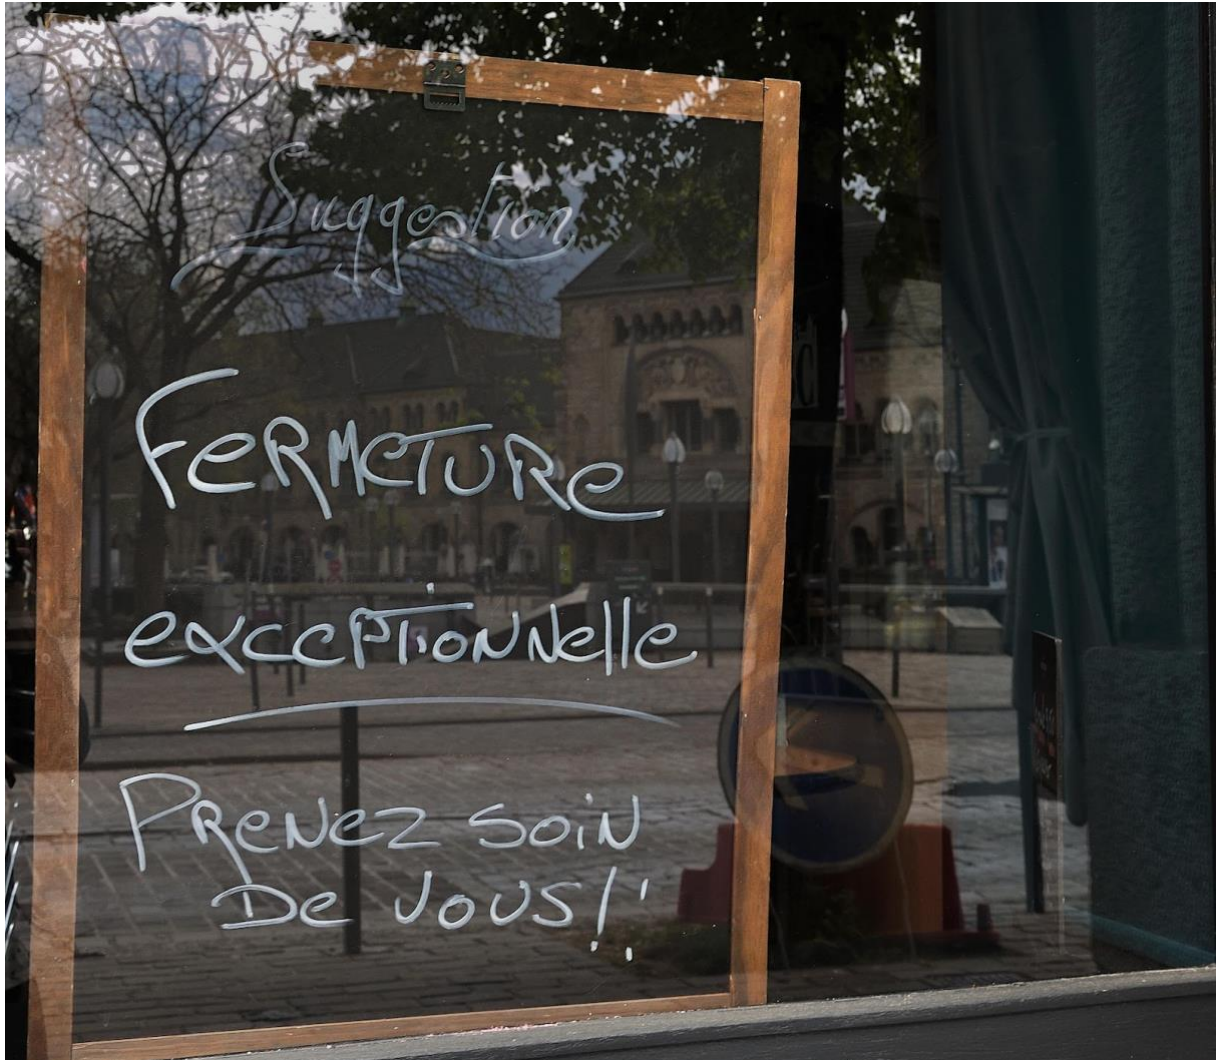 Suggestion
Fermeture
exceptionnelle
Prenez soin
De vous!!